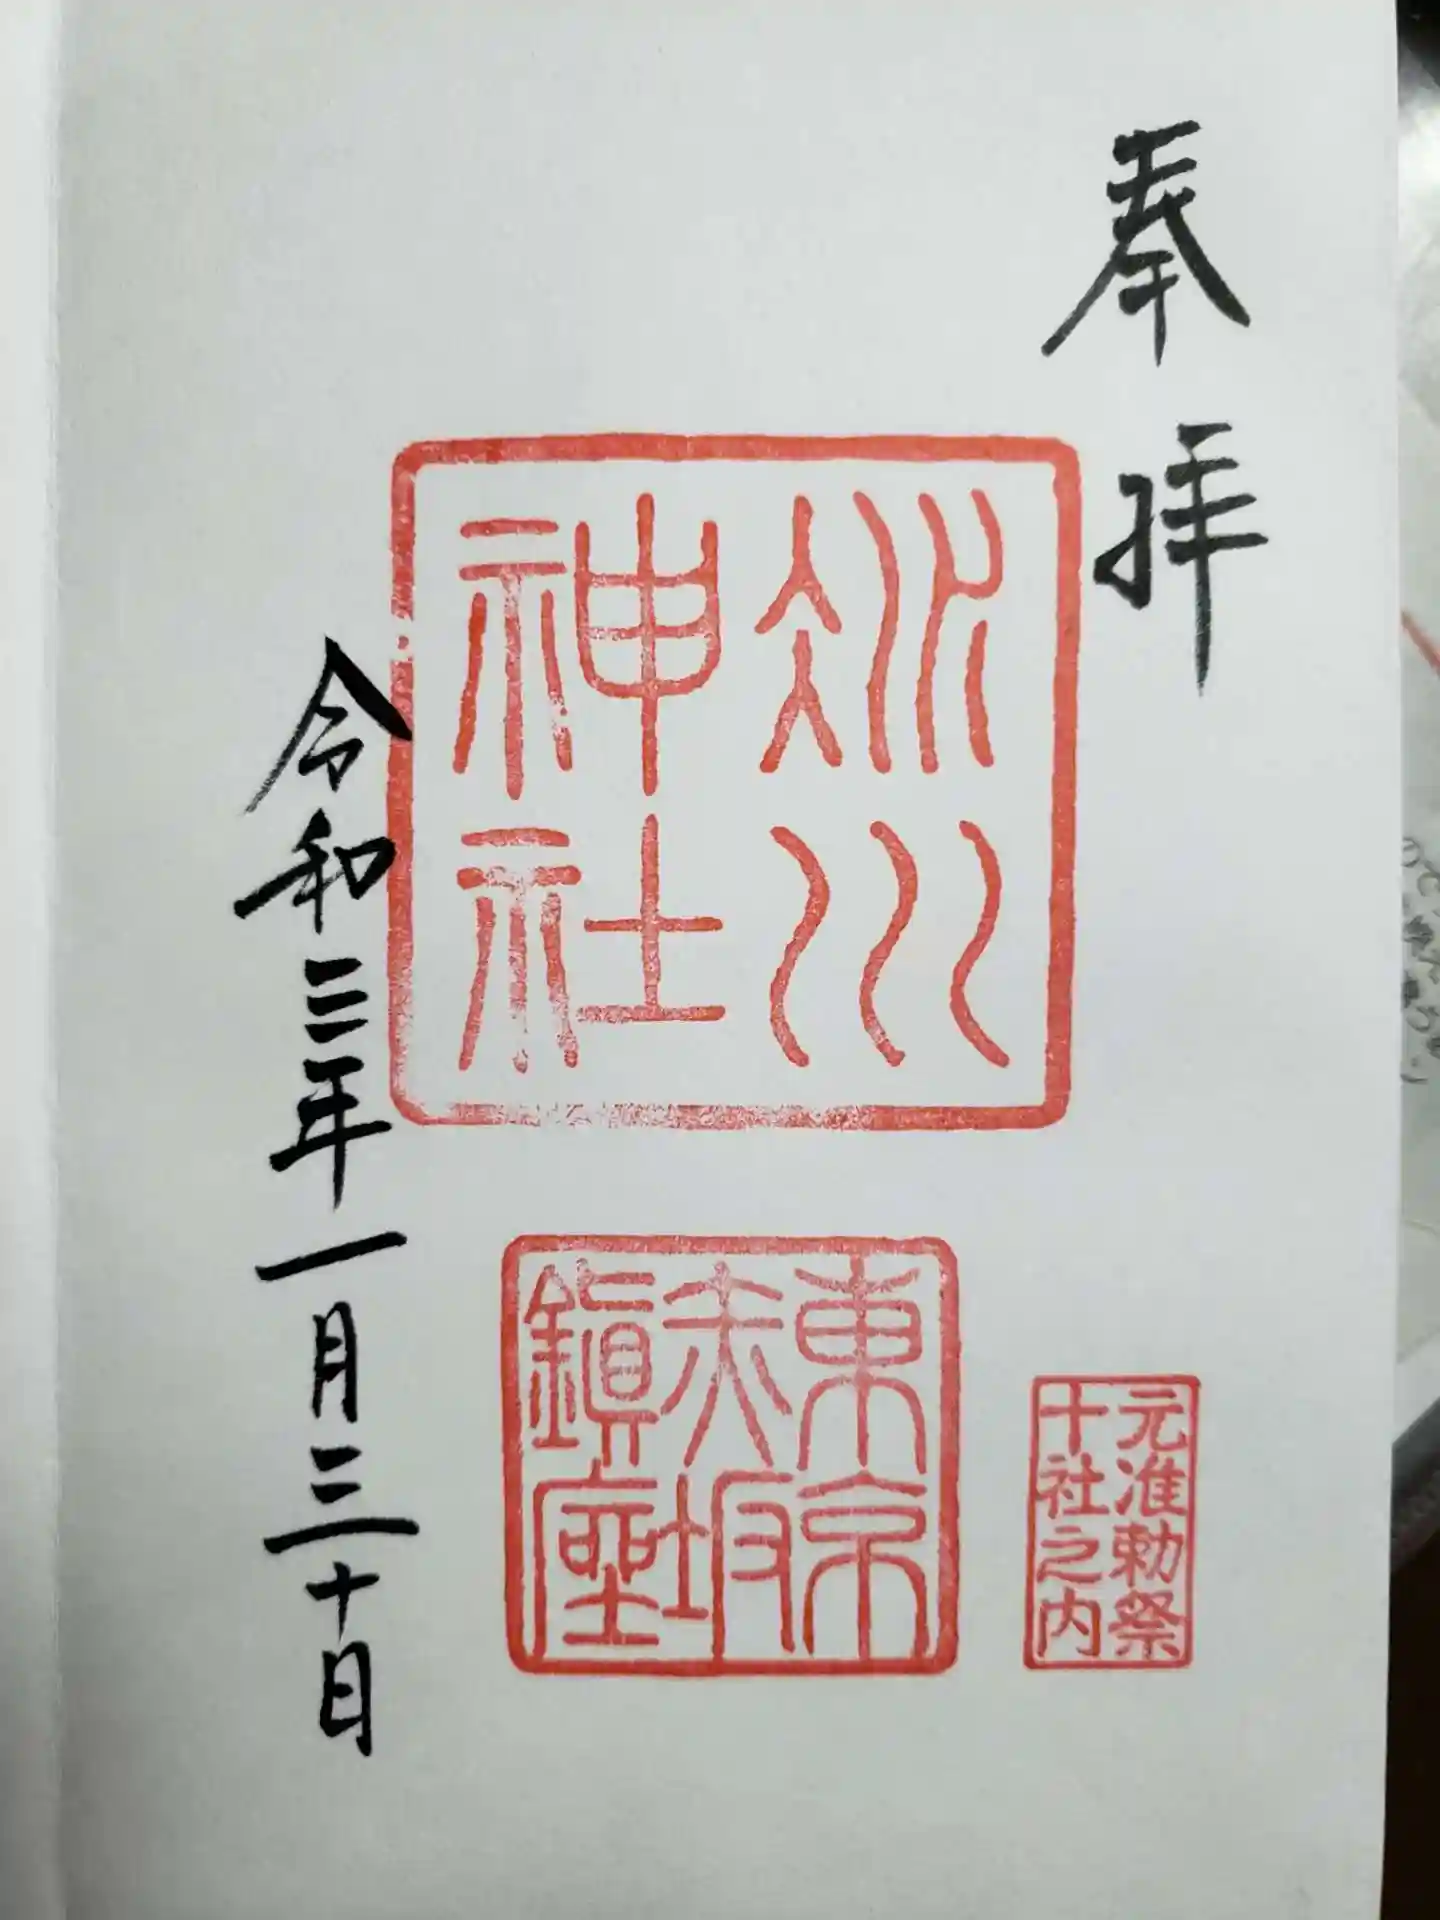 奉拝
氷川
神社
元准勅祭
十社之内
東京
赤坂
鎮座
令和三年一月三十日